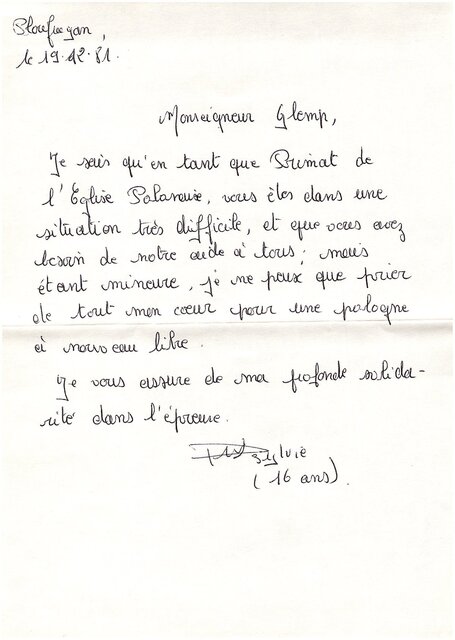 Ploufragan,
le 19.12.81.
Monseigneur Glemp,
Je sais qu'en tant que Primat de
l'Eglise Polonaise, vous êtes dans une
situation très difficile, et que vous avez
besoin de notre aide à tous ; mais
étant mineure, je ne peux que prier
de tout mon coeur pour une pologne
à nouveau libre.
Je vous assure de ma profonde solida-
rité dans l'épreuve.
Sylvie
(16 ans).